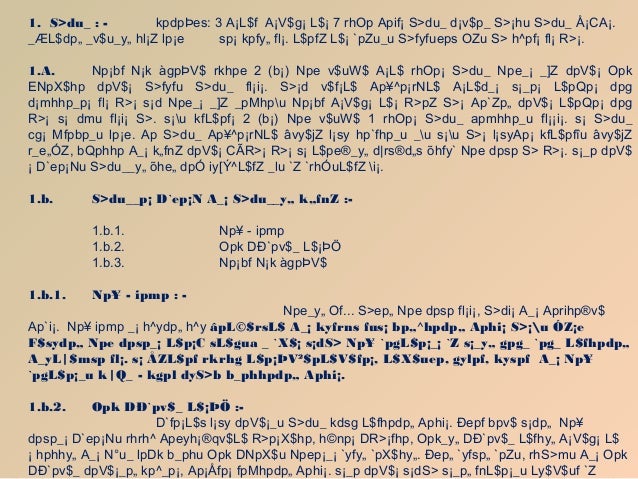 1. S>du_ : - kpdpÞes: 3 A¡L$f A¡V$g¡ L$¡ 7 rhOp Apif¡ S>du_ d¡v$p_ S>¡hu S>du_ Å¡CA¡.
_ÆL$dp„ _v$u_y„ hl¡Z lp¡e sp¡ kpfy„ fl¡. L$pfZ L$¡ `pZu_u S>fyfueps OZu S> h^pf¡ fl¡ R>¡.
1.A. Np¡bf N¡k àgpÞV$ rkhpe 2 (b¡) Npe v$uW$ A¡L$ rhOp¡ S>du_ Npe_¡ _]Z dpV$¡ Opk
ENpX$hp dpV$¡ S>fyfu S>du_ fl¡i¡. S>¡d v$f¡L$ Ap¥^p¡rNL$ A¡L$d_¡ s¡_p¡ L$pQp¡ dpg
d¡mhhp_p¡ fl¡ R>¡ s¡d Npe_¡ _]Z _pMhpu Np¡bf A¡V$g¡ L$¡ R>pZ S>¡ Ap`Zp„ dpV$¡ L$pQp¡ dpg
R>¡ s¡ dmu fl¡i¡ S>. s¡u kfL$pf¡ 2 (b¡) Npe v$uW$ 1 rhOp¡ S>du_ apmhhp_u fl¡¡i¡. s¡ S>du_
cg¡ Mfpbp_u lp¡e. Ap S>du_ Ap¥^p¡rNL$ âvy$jZ l¡sy hp`fhp_u _u s¡u S>¡ l¡syAp¡ kfL$pfîu âvy$jZ
r_e„ÓZ, bQphhp A_¡ k„fnZ dpV$¡ CÃR>¡ R>¡ s¡ L$pe®_y„ d|rs®d„s õhfy` Npe dpsp S> R>¡. s¡_p dpV$
¡ D`ep¡Nu S>du__y„ õhe„ dpÓ iy[Ý^L$fZ _lu `Z `rhÓuL$fZ \i¡.
1.b. S>du__p¡ D`ep¡N A_¡ S>du__y„ k„fnZ :-
1.b.1. Np¥ - ipmp
1.b.2. Opk DÐ`pv$_ L$¡ÞÖ
1.b.3. Np¡bf N¡k àgpÞV$
1.b.1. Np¥ - ipmp : -
Npe_y„ Of... S>ep„ Npe dpsp fl¡i¡, S>di¡ A_¡ Aprihp®v$
Ap`i¡. Np¥ ipmp _¡ h^ydp„ h^y ápL©$rsL$ A_¡ kyfrns fus¡ bp„^hpdp„ Aphi¡ S>¡\u ÓZ¡e
F$sydp„ Npe dpsp_¡ L$p¡C sL$gua _ `X$¡ s¡dS> Np¥ `pgL$p¡_¡ `Z s¡_y„ gpg_ `pg_ L$fhpdp„
A_yL|$msp fl¡. s¡ ÅZL$pf rkrhg L$p¡ÞV²$pL$V$fp¡, L$X$uep, gylpf, kyspf A_¡ Np¥
`pgL$p¡_u k|Q_ - kgpl dyS>b b_phhpdp„ Aphi¡.
1.b.2. Opk DÐ`pv$_ L$¡ÞÖ :-
D`fp¡L$s l¡sy dpV$¡_u S>du_ kdsg L$fhpdp„ Aphi¡. Ðepf bpv$ s¡dp„ Np¥
dpsp_¡ D`ep¡Nu rhrh^ Apeyh¡®qv$L$ R>p¡X$hp, h©np¡ DR>¡fhp, Opk_y„ DÐ`pv$_ L$fhy„ A¡V$g¡ L$
¡ hphhy„ A_¡ N°u_ lpDk b_phu Opk DNpX$u Npep¡_¡ `yfy„ `pX$hy„. Ðep„ `yfsp„ `pZu, rhS>mu A_¡ Opk
DÐ`pv$_ dpV$¡_p„ kp^_p¡, Ap¡Åfp¡ fpMhpdp„ Aphi¡. s¡_p dpV$¡ s¡dS> s¡_p„ fnL$p¡_u Ly$V$uf `Z